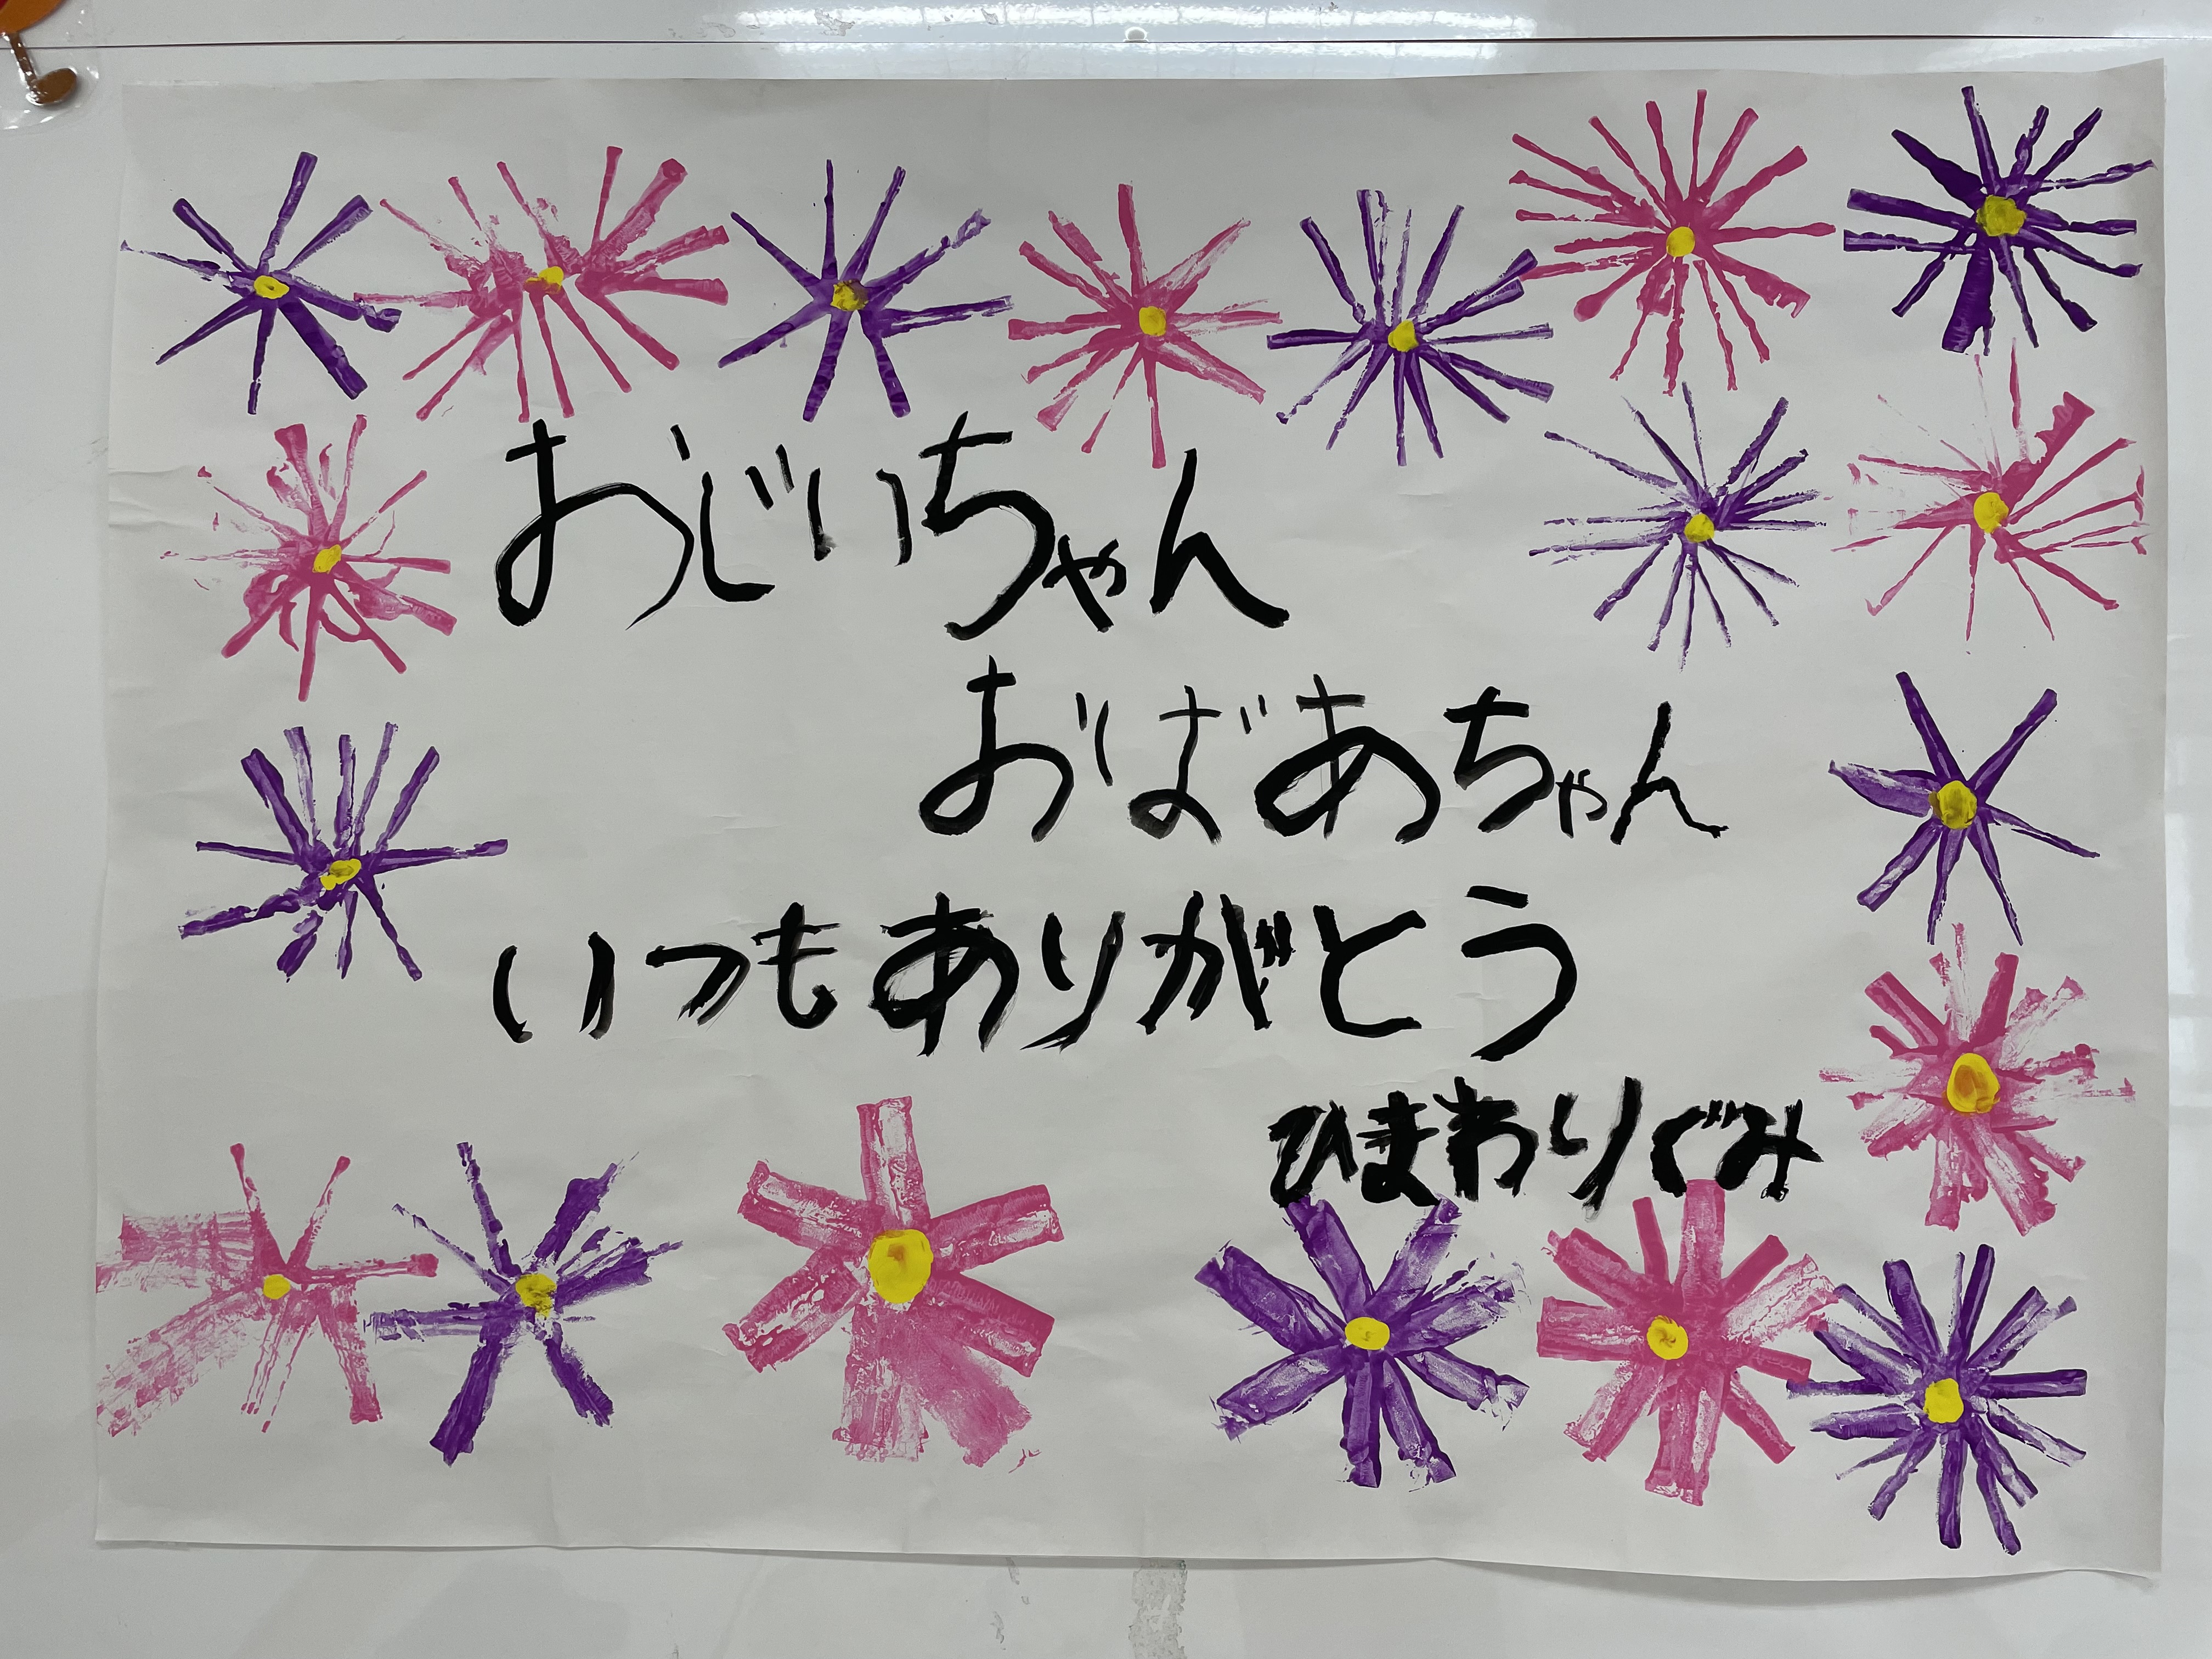 おじいちゃん
おばあちゃん
いつもありがとう
ひまわりぐみ